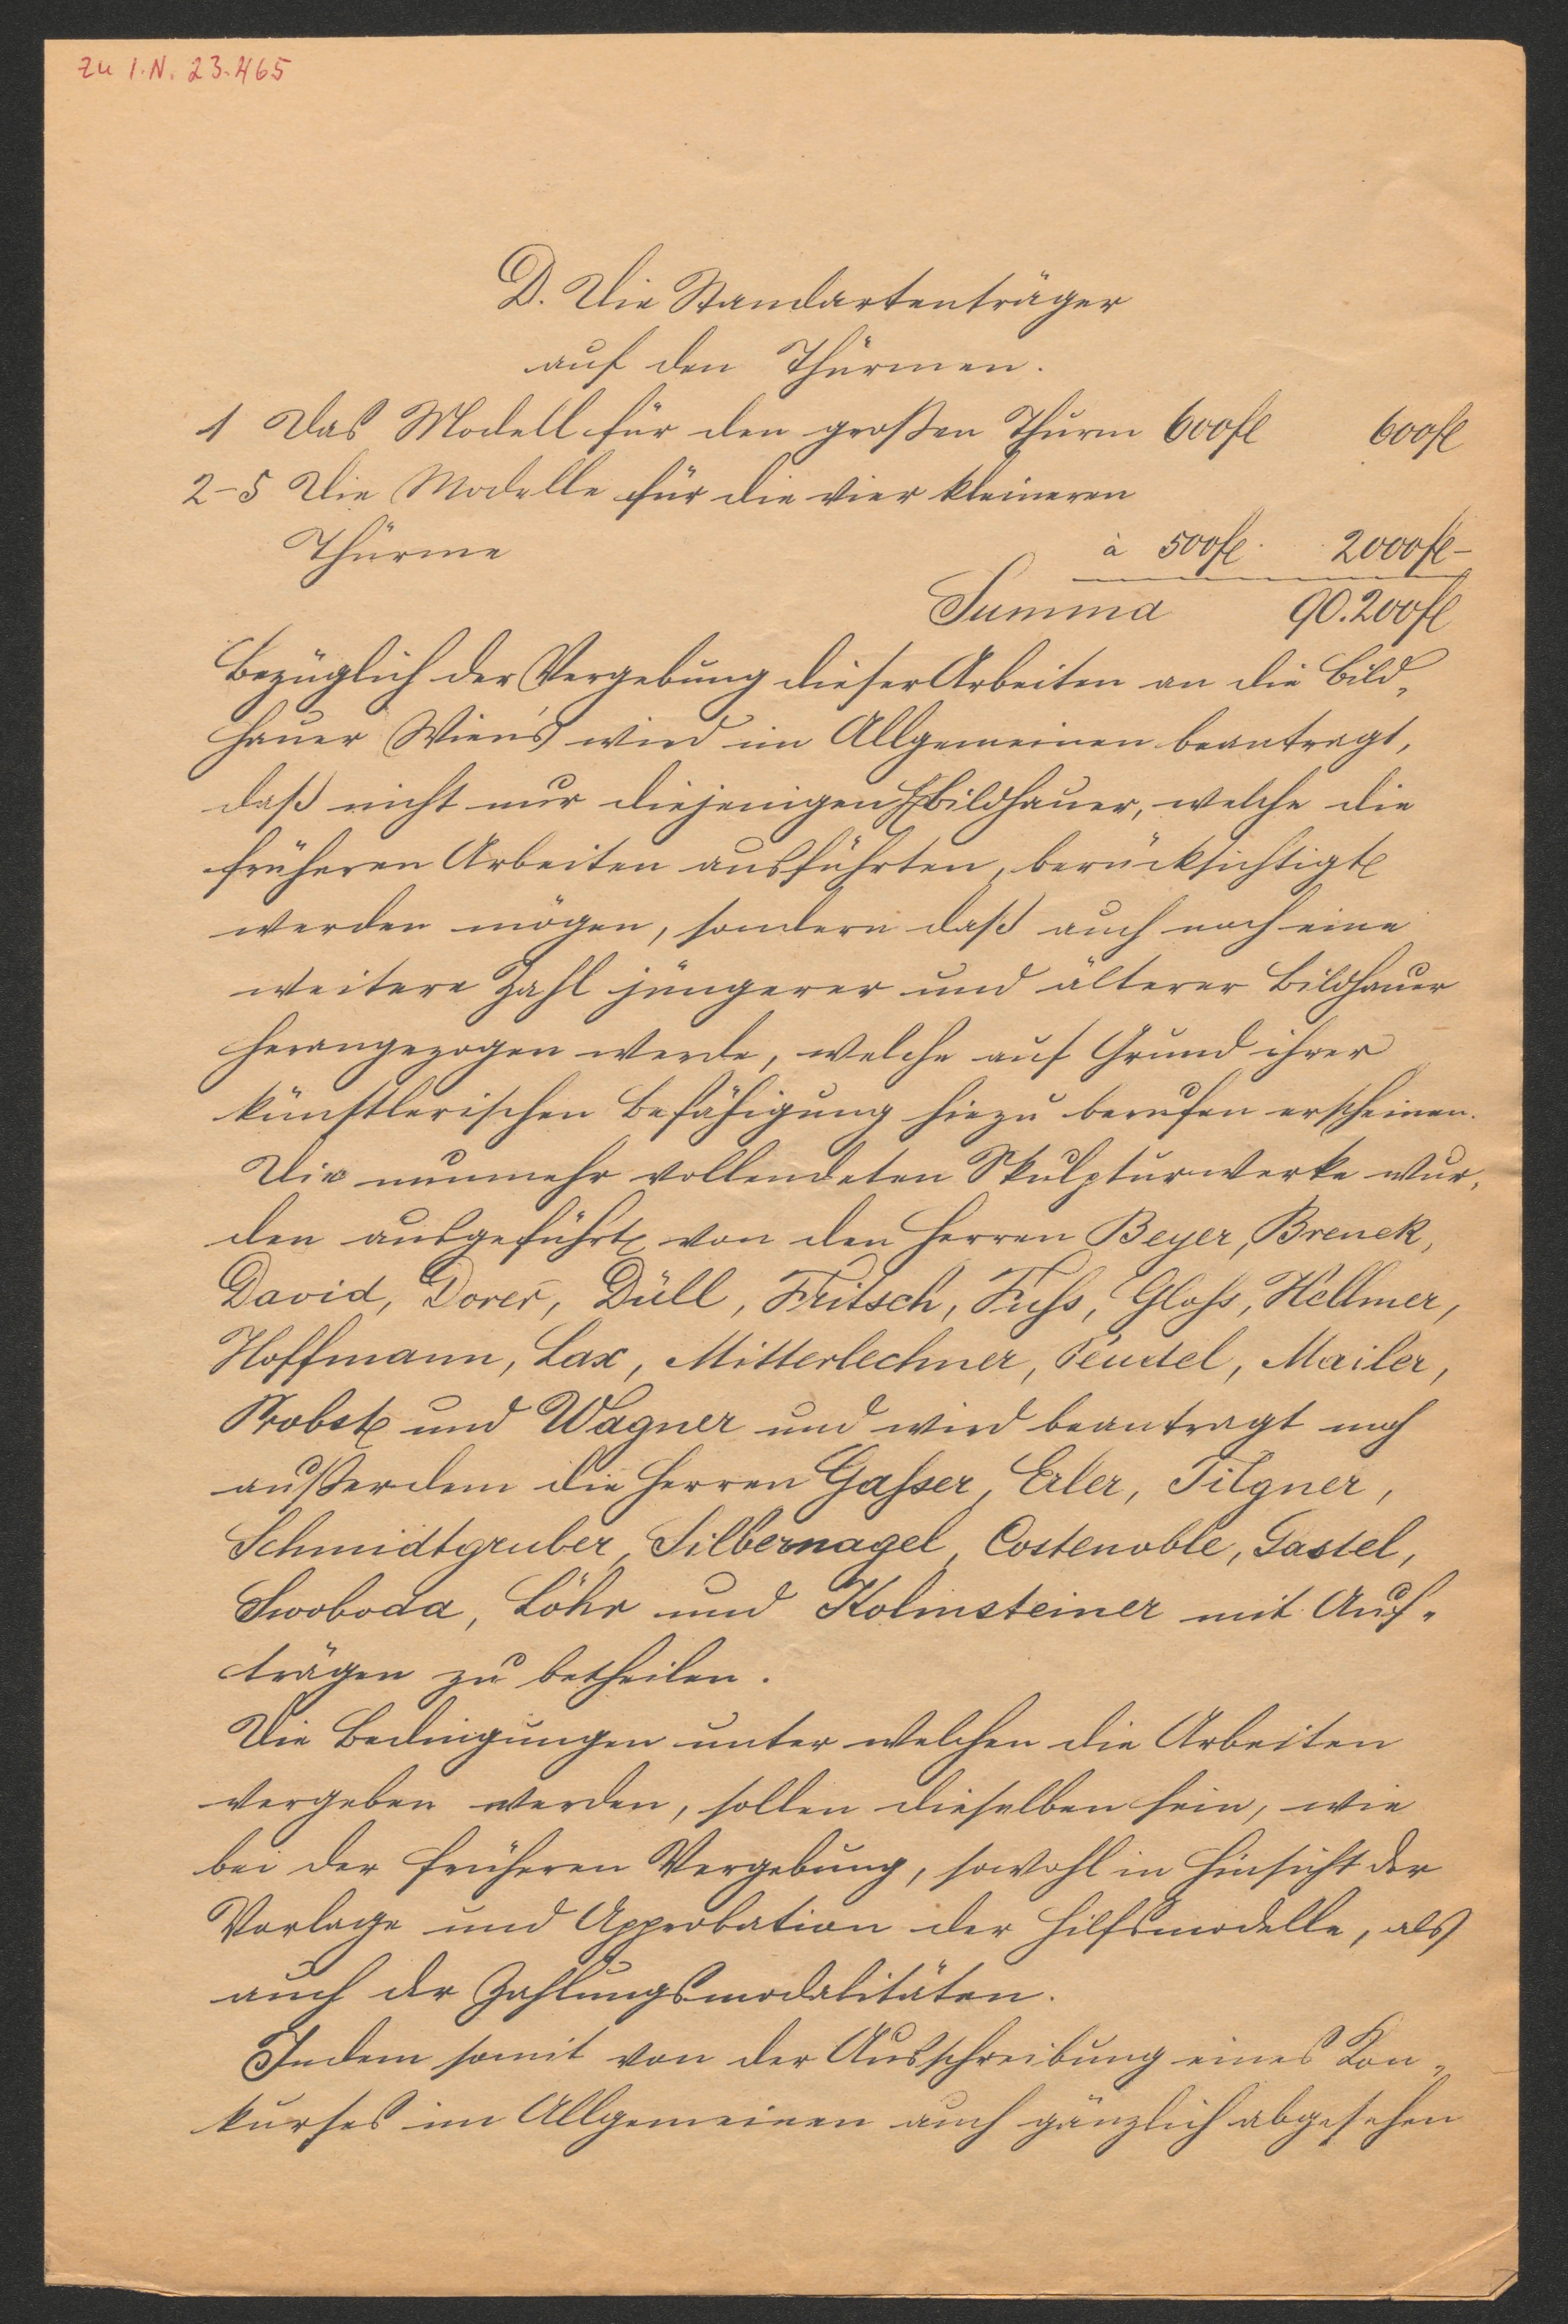 zu I.N. 23.465
D. Die Standartenträger
auf den Thürmen.
1 Das Modell für den großen Thurm 600fl 600fl
2-5 Die Modelle für die vier kleineren
Thürme à 500fl. 2000fl-
Summa 90.200fl
Bezüglich der Vergebung dieser Arbeiten an die Bild„
hauer Wien's wird im Allgemeinen beantragt,
daß nicht nur diejenigen Bildhauer, welche die
früheren Arbeiten ausführten, berücksichtigt
werden mögen, sondern daß auch noch eine
weitere Zahl jüngerer und älterer Bildhauer
herangezogen werde, welche auf Grund ihrer
künstlerischen Befähigung hiezu berufen erscheinen.
Die nunmehr vollendeten Skulpturwerke wur„
den ausgeführt von den Herren Beyer, Brenek,
David, Dorer, Düll, Fritsch, Fuſs, Gloſs, Hellmer,
Hoffmann, Lax, Mitterlechner, Pendel, Mailer,
Probst und Wagner und wird beantragt noch
außerdem die Herren Gaſser, Erler, Tilgner,
Schmidtgruber, Silbernagel, Costenoble, Gastel,
Swoboda, Löhr und Kolmsteiner mit Auf„
trägen zu betheilen.
Die Bedingungen unter welchen die Arbeiten
vergeben werden, sollen dieselben sein, wie
bei der früheren Vergebung, sowohl in Hinsicht der
Vorlage und Approbation der Hilfsmodelle, als
auch der Zahlungsmodalitäten.
Indem somit von der Ausschreibung eines Kon„
kurses im Allgemeinen auch gänzlich abgesehen